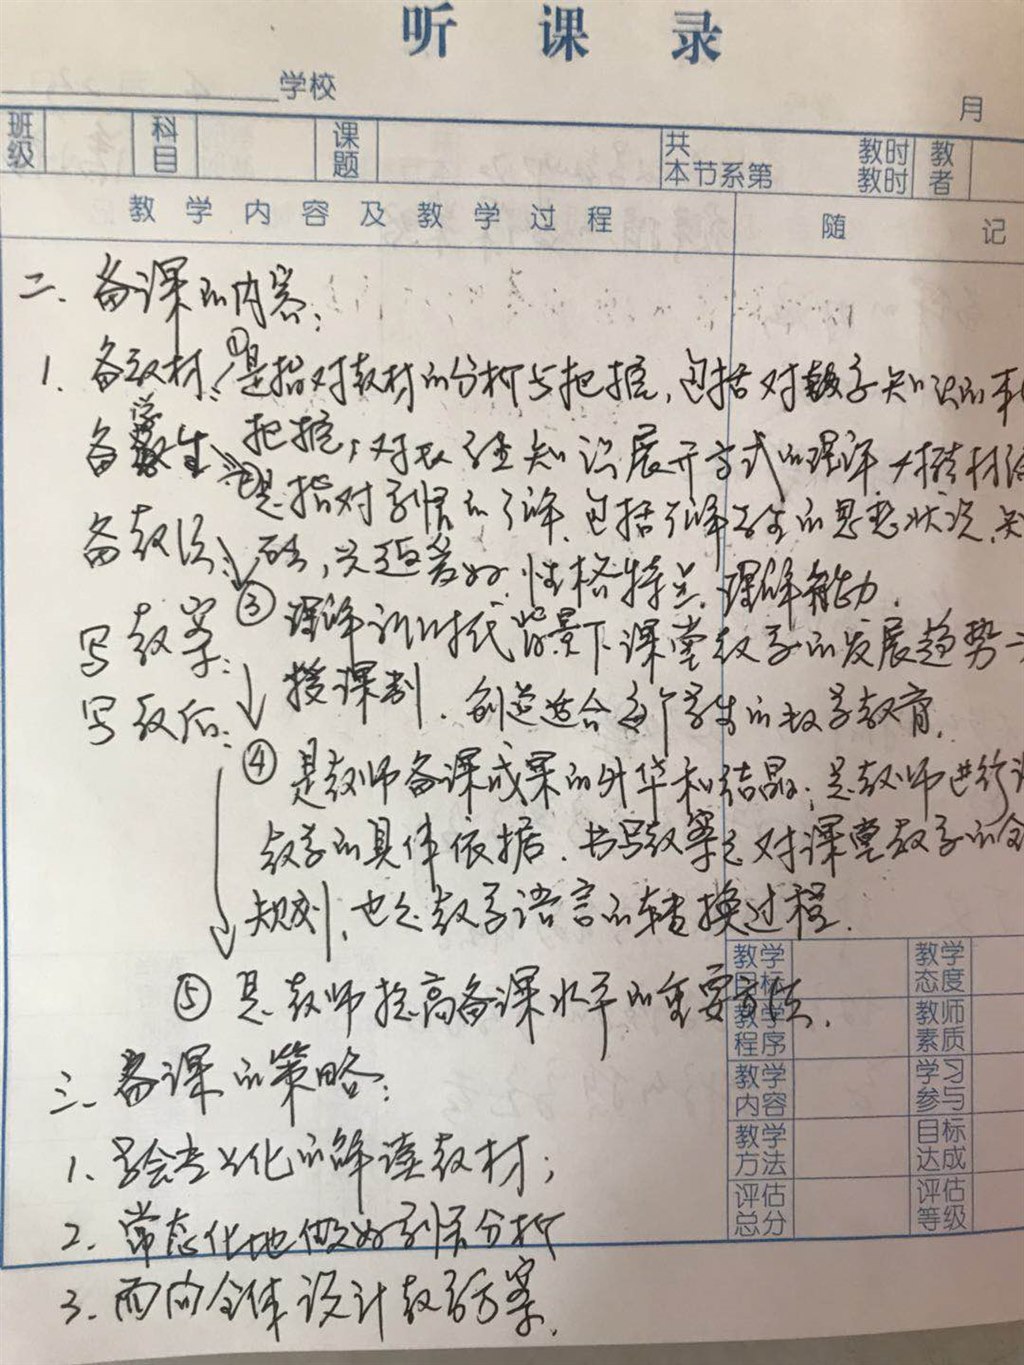 听课录
学校 月
班级 科目 课题 共 教时 教者
本节系第 教时
教学内容及教学过程 随记
二、备课的内容:
1. 备教材: ①是指对教材的分析与把握,包括对数学知识的本
把握;对教学知识展开方式的理解
备学生 ②是指对学情的了解、包括了解学生的思想状况、知
备教法: 础,兴趣爱好、性格特点、理解能力.
写教案: ③理解新时代背景下课堂教学的发展趋势
授课制. 创造适合每个学生的教学教育.
写教后:
④是教师备课成果的升华和结晶;是教师进行课
教学的具体依据.书写教案是对课堂教学的全
规划,也是教学语言的转换过程.
⑤是教师提高备课水平的重要方法.
教学目标 教学态度
教学程序 教师素质
教学内容 学习参与
教学方法 目标达成
评估总分 评估等级
三、备课的策略:
1. 专业化的解读教材;
2. 常态化地做好学情分析
3. 面向全体设计教学方案.